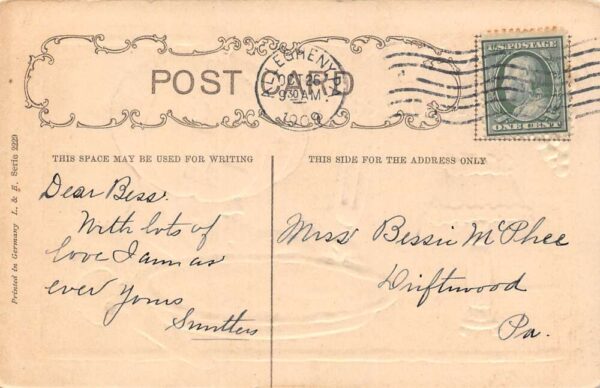 POST CARD
ALLEGHENY, PA.
OCT 26
930 AM
1909
U.S. POSTAGE
ONE CENT
THIS SPACE MAY BE USED FOR WRITING
THIS SIDE FOR THE ADDRESS ONLY
Printed in Germany L. & B. Serie 2229
Dear Bess.
With lots of
love I am as
ever yours
Smitters
Miss Bessie McPhee
Driftwood
Pa.